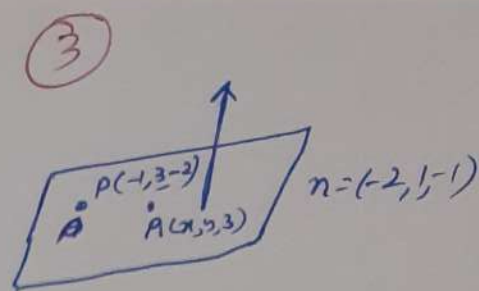 3
P(-1,3-2)
A(x,y,3)
n=(-2,1,-1)